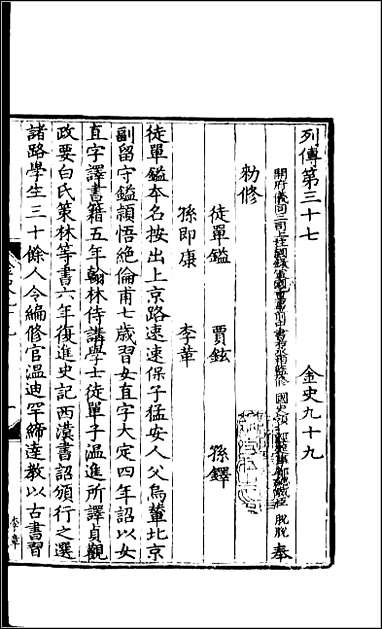 列傳第三十七　　　金史九十九
開府儀同三司上柱國錄軍國重事前中書右丞相監修國史領經筵事都總裁臣脫脫奉
勑修
徒單鎰　賈鉉　孫鐸
孫即康　李革
徒單鎰本名按出上京路速速保子猛安人父烏輦北京
副留守鎰頴悟絕倫甫七歲習女直字大定四年詔以女
直字譯書籍五年翰林侍講學士徒單子溫進所譯貞觀
政要白氏策林等書六年復進史記西漢書詔頒行之選
諸路學生三十餘人令編修官溫迪罕締達教以古書習
金史九十九
一
李章